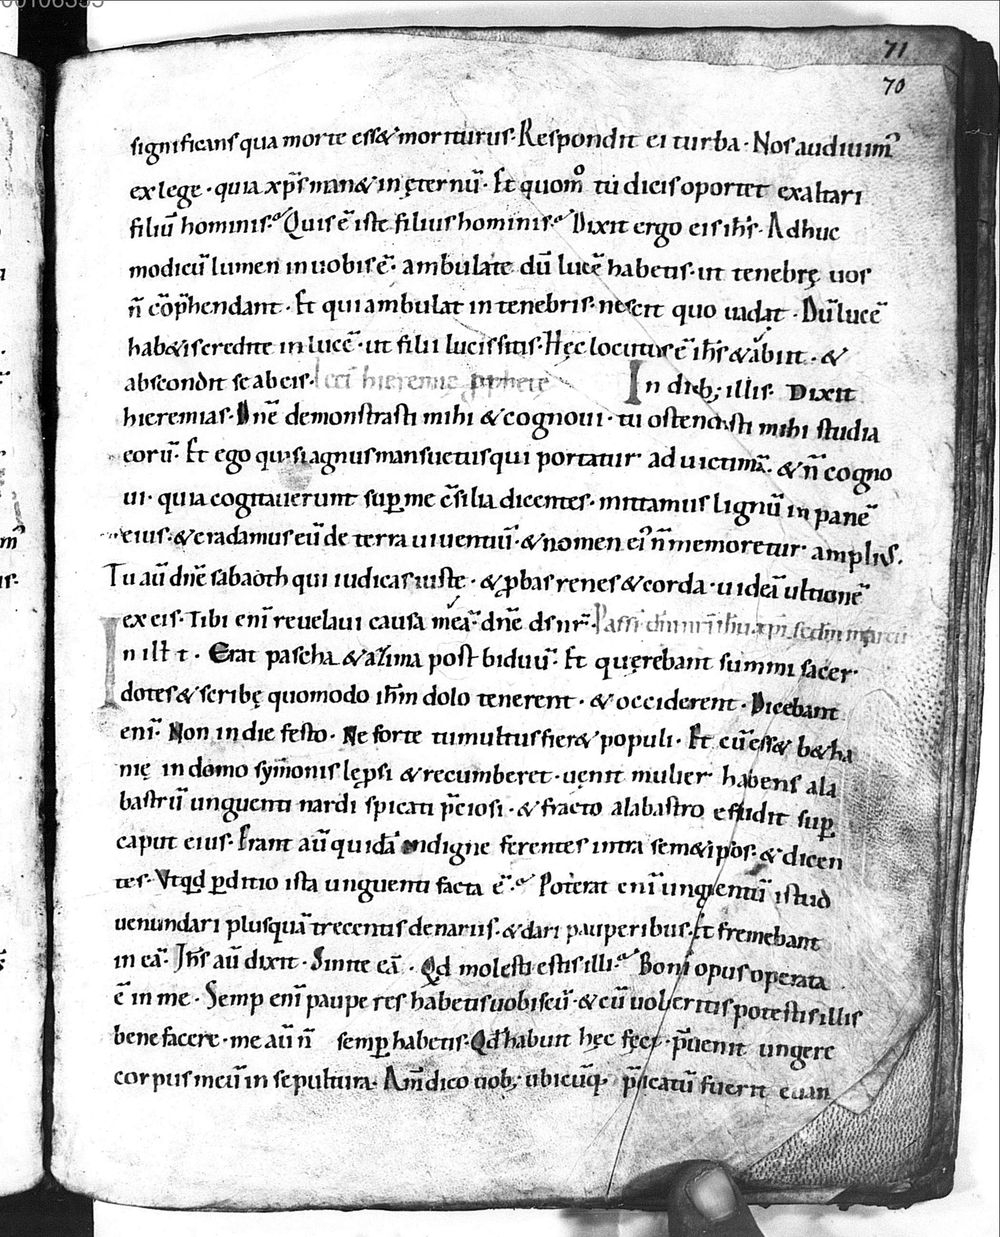 00106355
71
70
significans qua morte ess& moriturus. Respondit ei turba. Nos audiuim᾿
ex lege. quia xp̅s man& in ęternū. Et quom̊ tu dicis oportet exaltari
filiū hominis? Quis ē iste filius hominis? Dixit ergo eis ih̅s. Adhuc
modicū lumen in uobis ē. ambulate dū lucē habetis. ut tenebrę uos
n̄ cōp̄hendant. Et qui ambulat in tenebris. nescit quo uadat. Dū lucē
hab&is credite in lucē. ut filii lucis sitis. Hęc locutus ē ih̅s & abiit. &
abscondit se ab eis. Lec̄t hieremię pphetę In dieb; illis. Dixit
hieremias. Dn̄e demonstrasti mihi & cognoui. tu ostendisti mihi studia
eorū. Et ego quasi agnus mansuetus qui portatur ad uictimā. & n̄ cogno
ui. quia cogitauerunt sup̱ me cṡilia dicentes. mittamus lignū in panē
eius. & eradamus eū de terra uiuentiū. & nomen ei᾿ n̄ memoretur amplius.
Tu aū dn̄e sabaoth qui iudicas iuste. & p̱bas renes & corda. uideā ultionē
ex eis. Tibi eni̅ reuelaui causā meā. dn̄e ds nr̄. Passi dn̄i nr̄i ihu xpi sedm marcu
In ill̄ t. Erat pascha & azima post biduū. Et quęrebant summi sacer
dotes & scribę quomodo ih̅m dolo tenerent. & occiderent. Dicebant
eni̅. Non in die festo. Ne forte tumultus fier& populi. Et cū ess& b&ha
nię in domo symonis lęp̱si & recumberet. uenit mulier habens ala
bastrū unguenti nardi spicati p̄ciosi. & fracto alabastro effudit sup̱
caput eius. Erant aū quidā indigne ferentes intra sem&ipsos. & dicen
tes. Vt qd p̱ditio ista unguenti facta ē? Poterat eni̅ unguentū istud
uenundari plus quā trecentis denariis. & dari pauperibus. Et fremebant
in eā. Ih̅s aū dixit. Sinite eā. Qd molesti estis illi? Bonū opus operata
ē in me. Semp eni̅ pauperes habetis uobiscū. & cū uolueritis potestis illis
bene facere. me aū n̄ semp̱ habetis. Qd̄ habuit hęc fec̄. p̄uenit ungere
corpus meū in sepultura. Am̄ dico uob; ubicūq. p̄dicatū fuerit euan